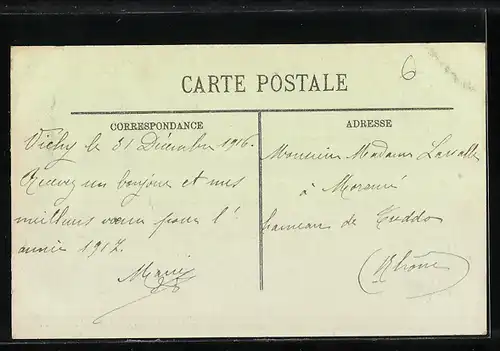 6
CARTE POSTALE
CORRESPONDANCE
Vichy le 31 Décembre 1916.
Recevez un bonjour et mes
meilleurs vœux pour l'
année 1917.
Marie
ADRESSE
Monsieur Madame
à
hameau de
(Rhône)